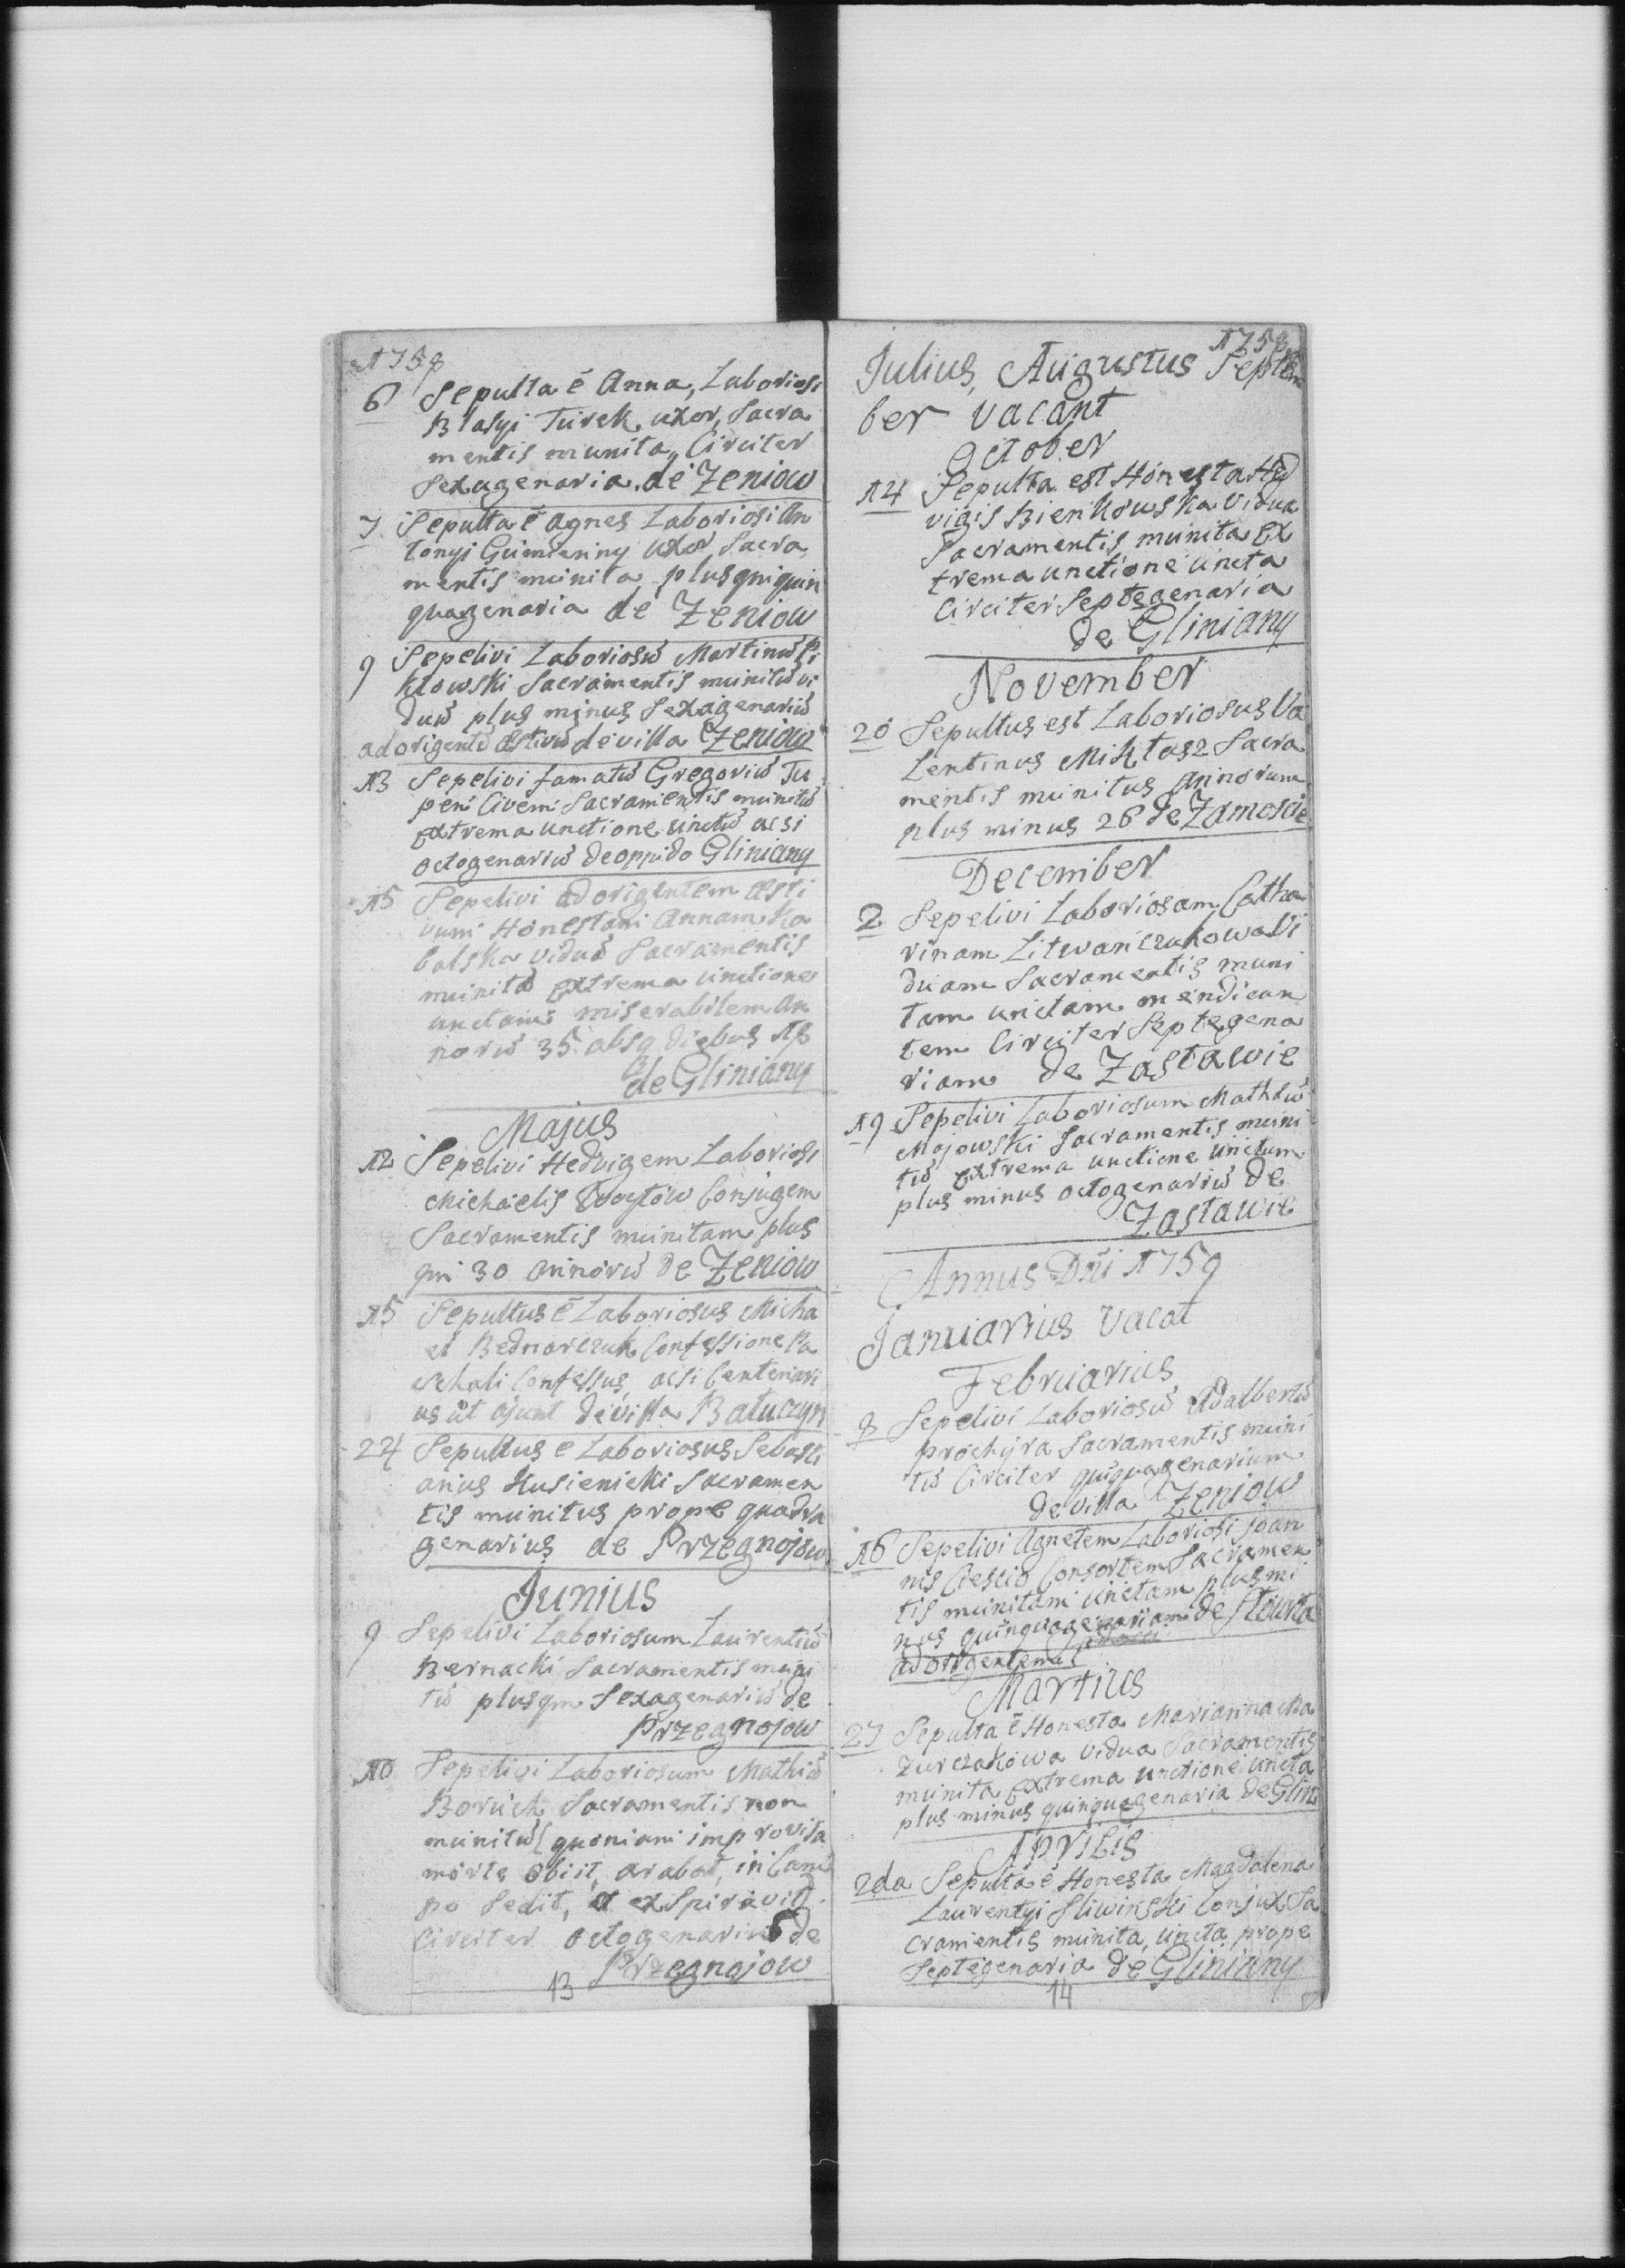 1758
6 Sepulta ē Anna, Laboriosi
Blasyi Turek uxor, Sacra
mentis munita, Circiter
Sexagenaria de Zeniow
7 Sepulta ē Agnes Laboriosi An
tonyi Gumieniny uxor Sacra
mentis munita plusqm quin
quagenaria de Zeniow
9 Sepelivi Laboriosū Martinū
Sacramentis munitū vi
duū plus minus Sexagenariū
ad origentē Æstivū de villa Zeniow
13 Sepelivi famatū Gregoriū Tu
pen Civem Sacramentis munitū
Extrema unctione unctū acsi
octogenariū de oppido Gliniany
15 Sepelivi ad origentem Æsti
vum Honestam Annam Ka
balska viduā Sacramentis
munitā Extrema unctione
unctam miserabilem An
norū 35 absq diebus 18
de Gliniany
Majus
12 Sepelivi Hedvigem Laboriosi
Michaelis Woytow Conjugem
Sacramentis munitam plus
qm 30 annorū de Zeniow
15 Sepultus ē Laboriosus Micha
el Bednarczuk Confessione Pa
schali Confessus, acsi Centenari
us ut ajunt de villa Batuczyn
24 Sepultus e Laboriosus Sebasti
anus Husienicki Sacramen
tis munitus prope quadra
genarius de Przegnojow
Junius
9 Sepelivi Laboriosum Laurentiū
Bernacki Sacramentis muni
tū plusqm Sexagenariū de
Przegnojow
10 Sepelivi Laboriosum Mathiū
Boruch Sacramentis non
munitū (quoniam improvisa
morte obiit, arabat, in Cam
po sedit, et exspiravit)
Circiter octogenarius de
Przegnojow
13
1758
Julius, Augustus Septem
ber vacant
October
14 Sepulta est Honesta Hed
vigis Bienkowska Vidua
Sacramentis munita Ex
trema unctione uncta
Circiter Septegenaria
de Gliniany
November
20 Sepultus est Laboriosus Va
lentinus Miktasz Sacra
mentis munitus Annorum
plus minus 26 de Zamoscie
December
2 Sepelivi Laboriosam Catha
rinam Litwanczukowa Vi
duam Sacramentis muni
tam unctam mendican
tem Circiter Septegena
riam de Zastawie
19 Sepelivi Laboriosum Mathiū
Majowski Sacramentis muni
tū Extrema unctione unctum
plus minus octogenariū de
Zastawie
Annus Dni 1759
Januarius vacat
Februarius
8 Sepelivi Laboriosū Adalbertū
Prochyra Sacramentis muni
tū Circiter quiquagenarium
de villa Zeniow
16 Sepelivi Agnetem Laboriosi Joan
nis Ciescio Consortem Sacramen
tis munitam unctam plus mi
nus quinquagenariam de Stowita
ad origentem
Martius
27 Sepulta ē Honesta Marianna Ma
zurczakowa vidua Sacramentis
munita Extrema unctione uncta
plus minus quinquagenaria de Glin
Aprilis
2da Sepulta ē Honesta Magdalena
Laurentyi Sliwinski Conjux Sa
cramentis munita, uncta prope
Septegenaria de Gliniany
14